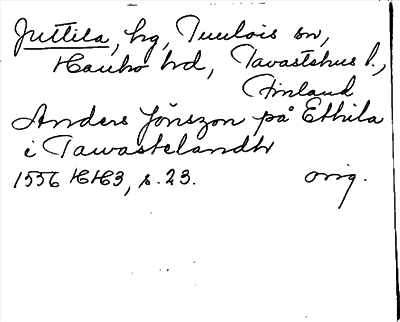 Juttila, hg, Tuulois sn,
Hauho hd, Tavastehus l.,
Finland
Anders Jönszon på Ethila
i Tawastelandh
1556 HH3, s. 23. orig.